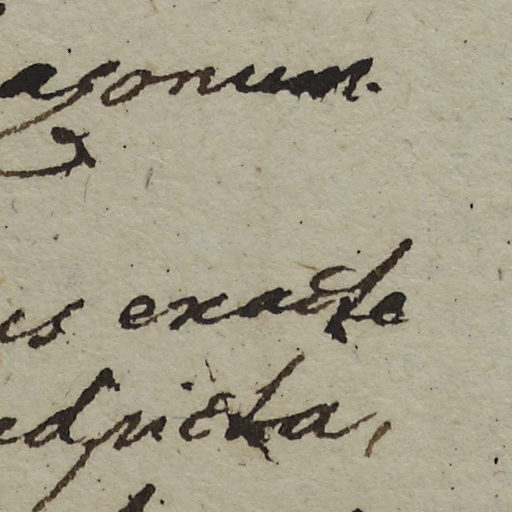 asonum.
us exacte
edpicta,